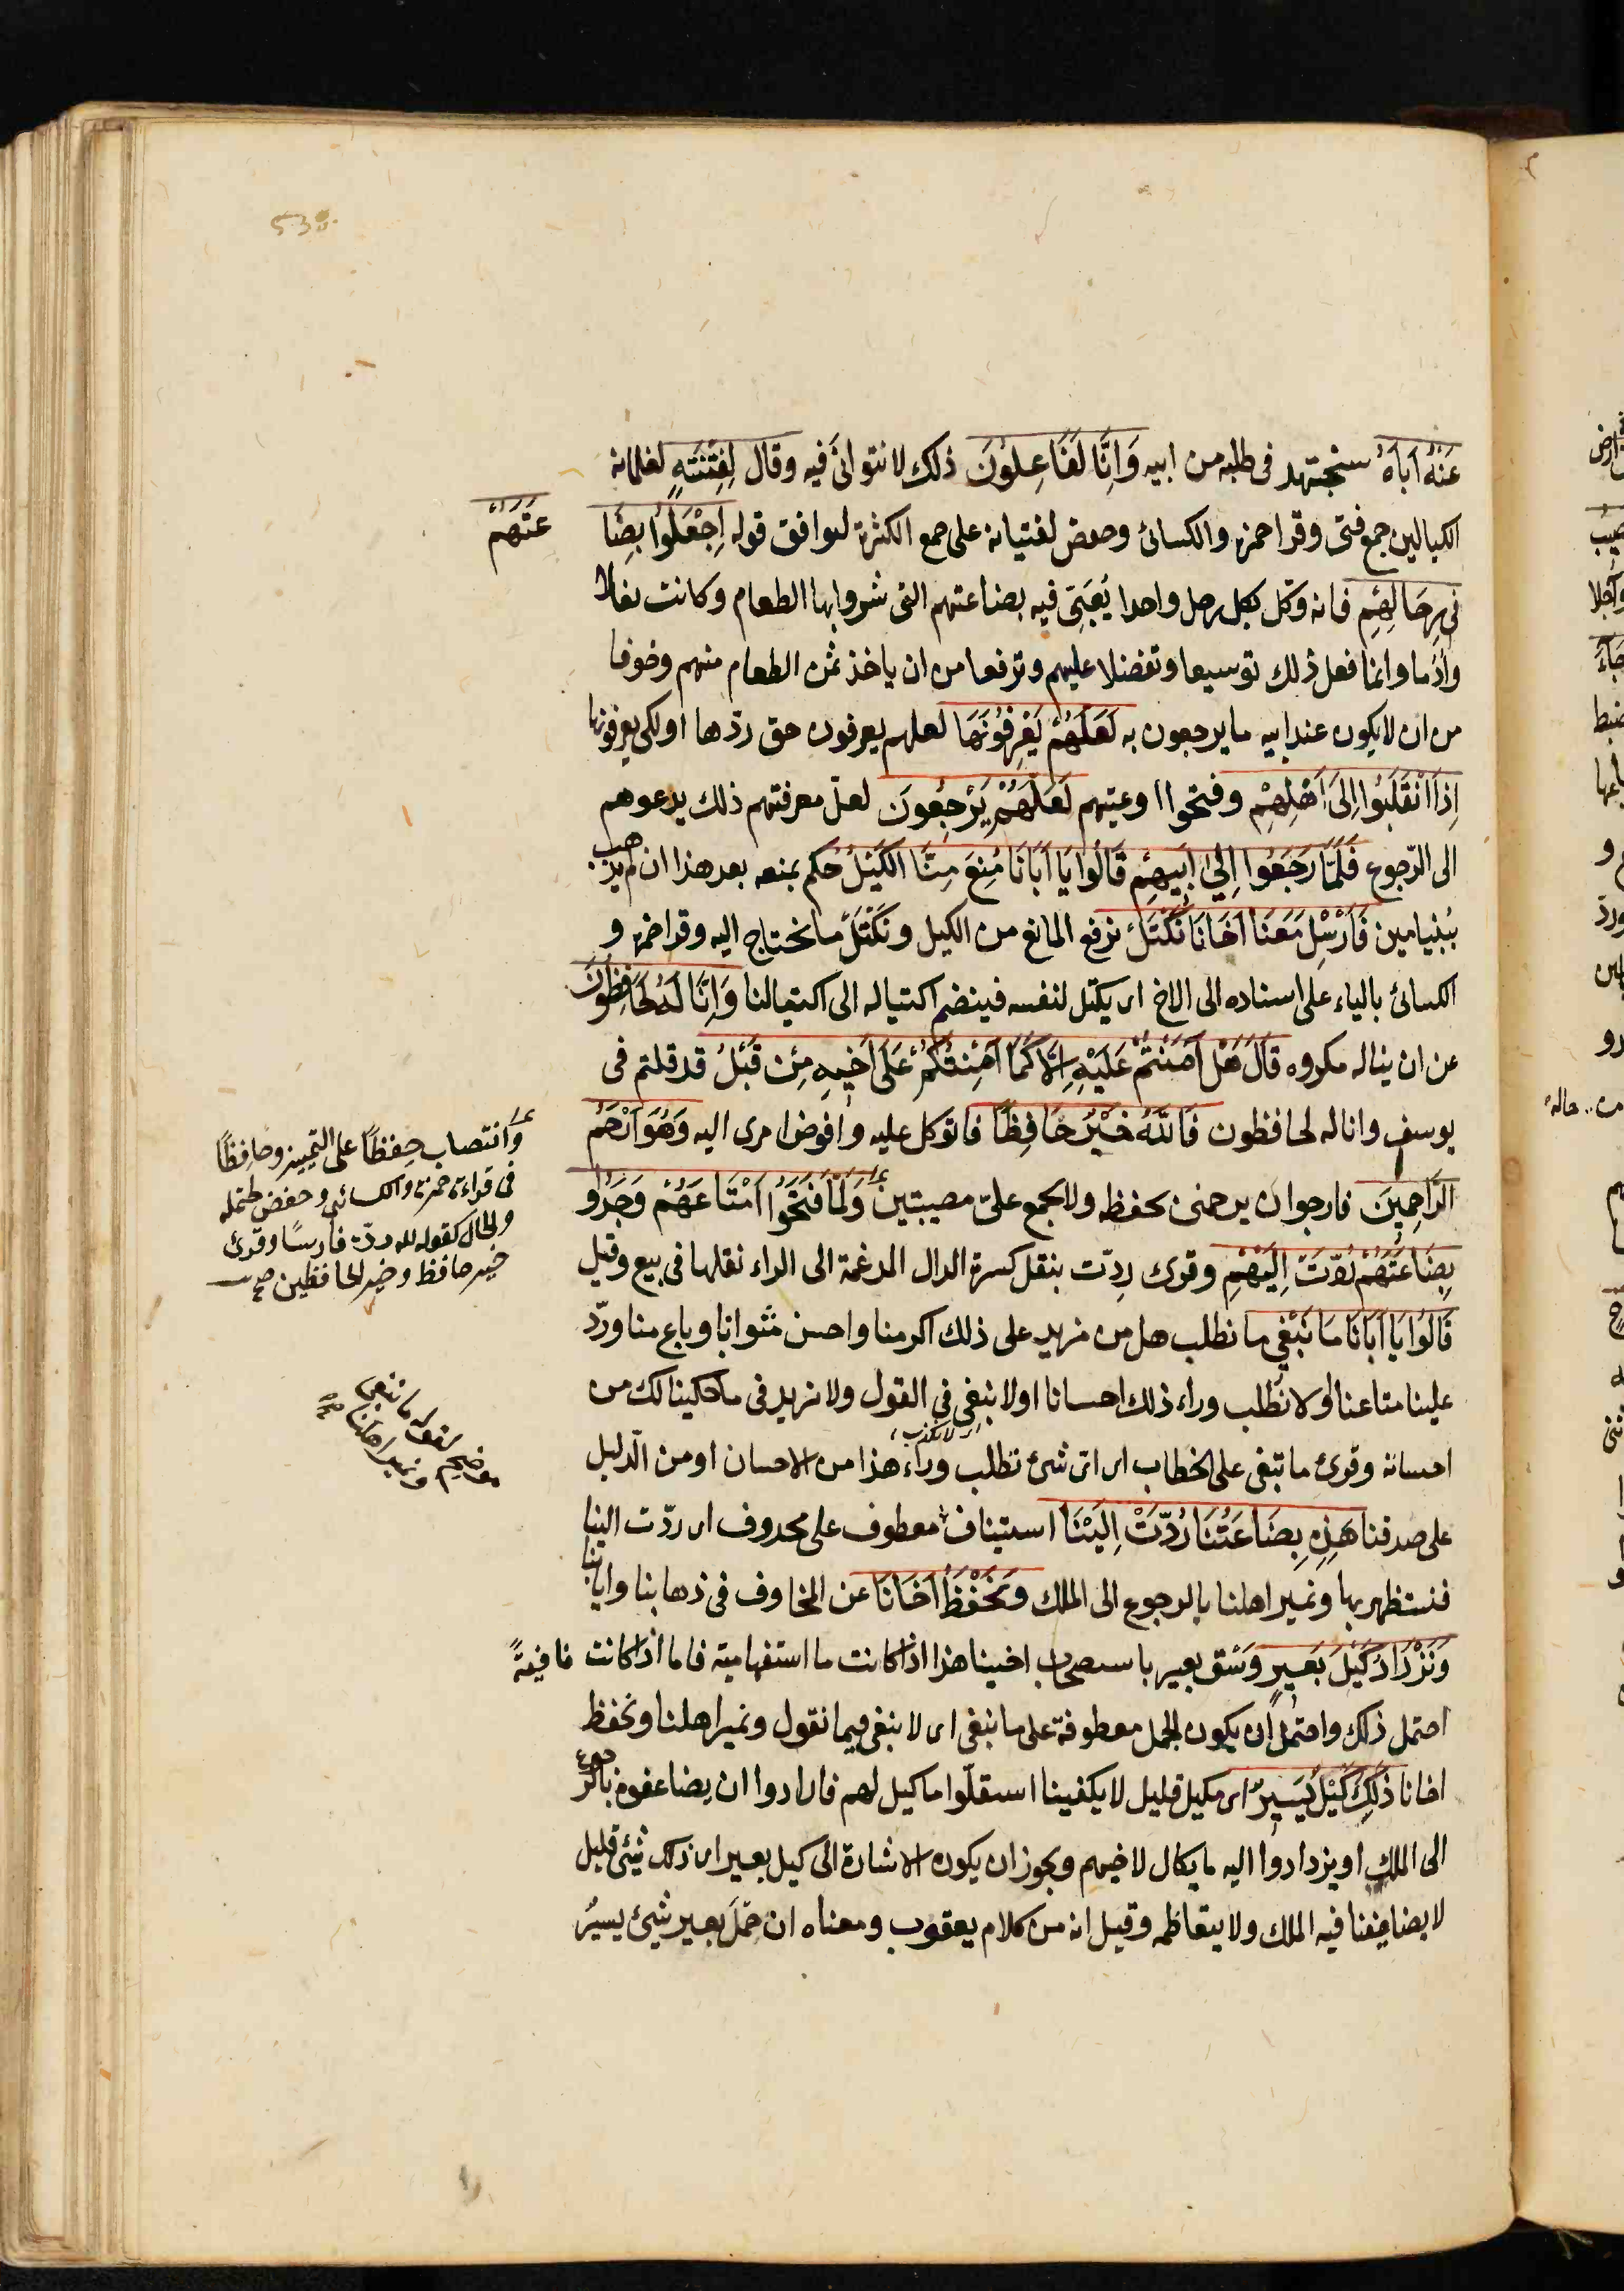 عَنْهُ اَبَاهُ سنجتهد فى طلبه من ابيه وَاِنَّا لَفَاعِلُونَ ذلك لا نتوانى فيه وقال لِفِتْيَتِهِ لغلمانه
الكيالين جمع فتى وقرا حمزة والكسائى وحفص لفتيانه على جمع الكثرة ليوافق قوله اِجْعَلُوا بِضَا
عَتَهُمْ
فى رِحَالِهِمْ فانه وكّل بكل رحل واحدا يُعَبِّى فيه بضاعتهم التى شروا بها الطعام وكانت نعالا
واَدَما وانما فعل ذلك توسيعا وتفضلا عليهم وترفعا من ان ياخذ ثمن الطعام منهم وخوفا
من ان لا يكون عند ابيه ما يرجعون به لَعَلَّهُمْ يَعْرِفُونَهَا لعلهم يعرفون حق ردّها او لكى يعرفونها
اِذَا انْقَلَبُوا اِلَى اَهْلِهِمْ وفتحوا اوعيتهم لَعَلَّهُمْ يَرْجِعُونَ لعلّ معرفتهم ذلك يدعوهم
الى الرّجوع فَلَمَّا رَجَعُوا اِلَى اَبِيهِمْ قَالُوا يَا اَبَانَا مُنِعَ مِنَّا الْكَيْلُ حُكم بمنعه بعد هذا ان لم يذهب
ببُنيامين فَاَرْسِلْ مَعَنَا اَخَانَا نَكْتَلْ نرفع المانع من الكيل ونكتَلْ ما نحتاج اليه وقرا حمزة و
الكسائى بالياء على اسناده الى الاخ اى يكتل لنفسه فينضم اكتياله الى اكتيالنا وَاِنَّا لَهُ لَحَافِظُونَ
عن ان يناله مكروه قَالَ هَلْ اٰمَنُكُمْ عَلَيْهِ اِلَّا كَمَا اَمِنْتُكُمْ عَلَى اَخِيهِ مِنْ قَبْلُ قد قلتم فى
يوسف وانا له لحافظون فَاللّٰهُ خَيْرٌ حَافِظًا فاتوكل عليه وافوض امرى اليه وَهُوَ اَرْحَمُ
الرَّاحِمِينَ فارجو ان يرحمنى بحفظه ولا يجمع علىّ مصيبتين وَلَمَّا فَتَحُوا مَتَاعَهُمْ وَجَدُوا
بِضَاعَتَهُمْ رُدَّتْ اِلَيْهِمْ وقرئ رِدّت بنقل كسرة الدال المدغمة الى الراء نقلها فى بيع وقيل
قَالُوا يَا اَبَانَا مَا نَبْغِى ما نطلب هل من مزيد على ذلك اكرمنا واحسن مثوانا وباع منا وردّ
علينا متاعنا او لا نطلب وراء ذلك احسانا او لا نبغى فى القول ولا نزيد فى ما حكينا لك من
احسانه وقرئ ما تبغى على الخطاب اى اىّ شئ تطلب وراء هذا من الاحسان او من الدّليل
على صدقنا هٰذِهِ بِضَاعَتُنَا رُدَّتْ اِلَيْنَا استيناف معطوف على محذوف اى ردّت الينا
فنستظهر بها ونمير اهلنا بالرجوع الى الملك وَنَحْفَظُ اَخَانَا عن المخاوف فى ذهابنا وايابنا
وَنَزْدَادُ كَيْلَ بَعِيرٍ وَسْق بعير باستصحاب اخينا هذا اذا كانت ما استفهامية فاما اذا كانت نافيةً
احتمل ذلك واحتمل ان يكون الجمل معطوفة على ما نبغى اى لا نبغى فيما نقول ونمير اهلنا ونحفظ
اخانا ذٰلِكَ كَيْلٌ يَسِيرٌ اى مكيل قليل لا يكفينا استقلّوا ما كيل لهم فارادوا ان يضاعفوه بالرجوع
الى الملك او يزدادوا اليه ما يكال لاخيهم ويجوز ان يكون الاشارة الى كيل بعير اى ذلك شئ قليل
لا يضايقنا فيه الملك ولا يتعاظمه وقيل انه من كلام يعقوب ومعناه ان حَمْلَ بعير شئ يسيرٌ
وانتصاب حِفظًا على التمييز وحافِظًا
فى قراءة حمزة والكسائى وحفض يحتمله
والحال كقوله لله درّه فارسًا وقرئ
خير حافظ وخير الحافظين صح
لا نكذب
ما نبغى
ونمير اهلنا